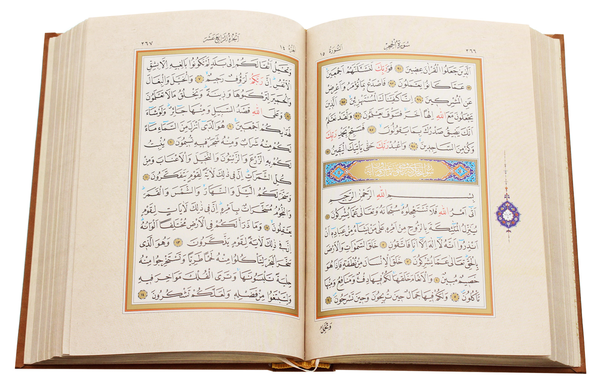 سورة الحجر
٢٦٦
الَّذِينَ جَعَلُوا الْقُرْآنَ عِضِينَ فَوَرَبِّكَ لَنَسْأَلَنَّهُمْ أَجْمَعِينَ
عَمَّا كَانُوا يَعْمَلُونَ فَاصْدَعْ بِمَا تُؤْمَرُ وَأَعْرِضْ
عَنِ الْمُشْرِكِينَ إِنَّا كَفَيْنَاكَ الْمُسْتَهْزِئِينَ الَّذِينَ
يَجْعَلُونَ مَعَ اللَّهِ إِلَهًا آخَرَ فَسَوْفَ يَعْلَمُونَ وَلَقَدْ نَعْلَمُ
أَنَّكَ يَضِيقُ صَدْرُكَ بِمَا يَقُولُونَ فَسَبِّحْ بِحَمْدِ رَبِّكَ
وَكُنْ مِنَ السَّاجِدِينَ وَاعْبُدْ رَبَّكَ حَتَّى يَأْتِيَكَ الْيَقِينُ
بِسْمِ اللَّهِ الرَّحْمَنِ الرَّحِيمِ
أَتَى أَمْرُ اللَّهِ فَلَا تَسْتَعْجِلُوهُ سُبْحَانَهُ وَتَعَالَى عَمَّا يُشْرِكُونَ
يُنَزِّلُ الْمَلَائِكَةَ بِالرُّوحِ مِنْ أَمْرِهِ عَلَى مَنْ يَشَاءُ مِنْ عِبَادِهِ أَنْ
أَنْذِرُوا أَنَّهُ لَا إِلَهَ إِلَّا أَنَا فَاتَّقُونِ خَلَقَ السَّمَوَاتِ وَالْأَرْضَ
بِالْحَقِّ تَعَالَى عَمَّا يُشْرِكُونَ خَلَقَ الْإِنْسَانَ مِنْ نُطْفَةٍ فَإِذَا هُوَ
خَصِيمٌ مُبِينٌ وَالْأَنْعَامَ خَلَقَهَا لَكُمْ فِيهَا دِفْءٌ وَمَنَافِعُ وَمِنْهَا
تَأْكُلُونَ وَلَكُمْ فِيهَا جَمَالٌ حِينَ تُرِيحُونَ وَحِينَ تَسْرَحُونَ
وَتَحْمِلُ
الجزء الرابع عشر
٢٦٧
وَتَحْمِلُ أَثْقَالَكُمْ إِلَى بَلَدٍ لَمْ تَكُونُوا بَالِغِيهِ إِلَّا بِشِقِّ
الْأَنْفُسِ إِنَّ رَبَّكُمْ لَرَؤُوفٌ رَحِيمٌ وَالْخَيْلَ وَالْبِغَالَ
وَالْحَمِيرَ لِتَرْكَبُوهَا وَزِينَةً وَيَخْلُقُ مَا لَا تَعْلَمُونَ
وَعَلَى اللَّهِ قَصْدُ السَّبِيلِ وَمِنْهَا جَائِرٌ وَلَوْ شَاءَ
لَهَدَاكُمْ أَجْمَعِينَ هُوَ الَّذِي أَنْزَلَ مِنَ السَّمَاءِ مَاءً
لَكُمْ مِنْهُ شَرَابٌ وَمِنْهُ شَجَرٌ فِيهِ تُسِيمُونَ يُنْبِتُ
لَكُمْ بِهِ الزَّرْعَ وَالزَّيْتُونَ وَالنَّخِيلَ وَالْأَعْنَابَ وَمِنْ
كُلِّ الثَّمَرَاتِ إِنَّ فِي ذَلِكَ لَآيَةً لِقَوْمٍ يَتَفَكَّرُونَ
وَسَخَّرَ لَكُمُ اللَّيْلَ وَالنَّهَارَ وَالشَّمْسَ وَالْقَمَرَ
وَالنُّجُومُ مُسَخَّرَاتٌ بِأَمْرِهِ إِنَّ فِي ذَلِكَ لَآيَاتٍ لِقَوْمٍ
يَعْقِلُونَ وَمَا ذَرَأَ لَكُمْ فِي الْأَرْضِ مُخْتَلِفًا أَلْوَانُهُ
إِنَّ فِي ذَلِكَ لَآيَةً لِقَوْمٍ يَذَّكَّرُونَ وَهُوَ الَّذِي
سَخَّرَ الْبَحْرَ لِتَأْكُلُوا مِنْهُ لَحْمًا طَرِيًّا وَتَسْتَخْرِجُوا مِنْهُ
حِلْيَةً تَلْبَسُونَهَا وَتَرَى الْفُلْكَ مَوَاخِرَ فِيهِ
وَلِتَبْتَغُوا مِنْ فَضْلِهِ وَلَعَلَّكُمْ تَشْكُرُونَ